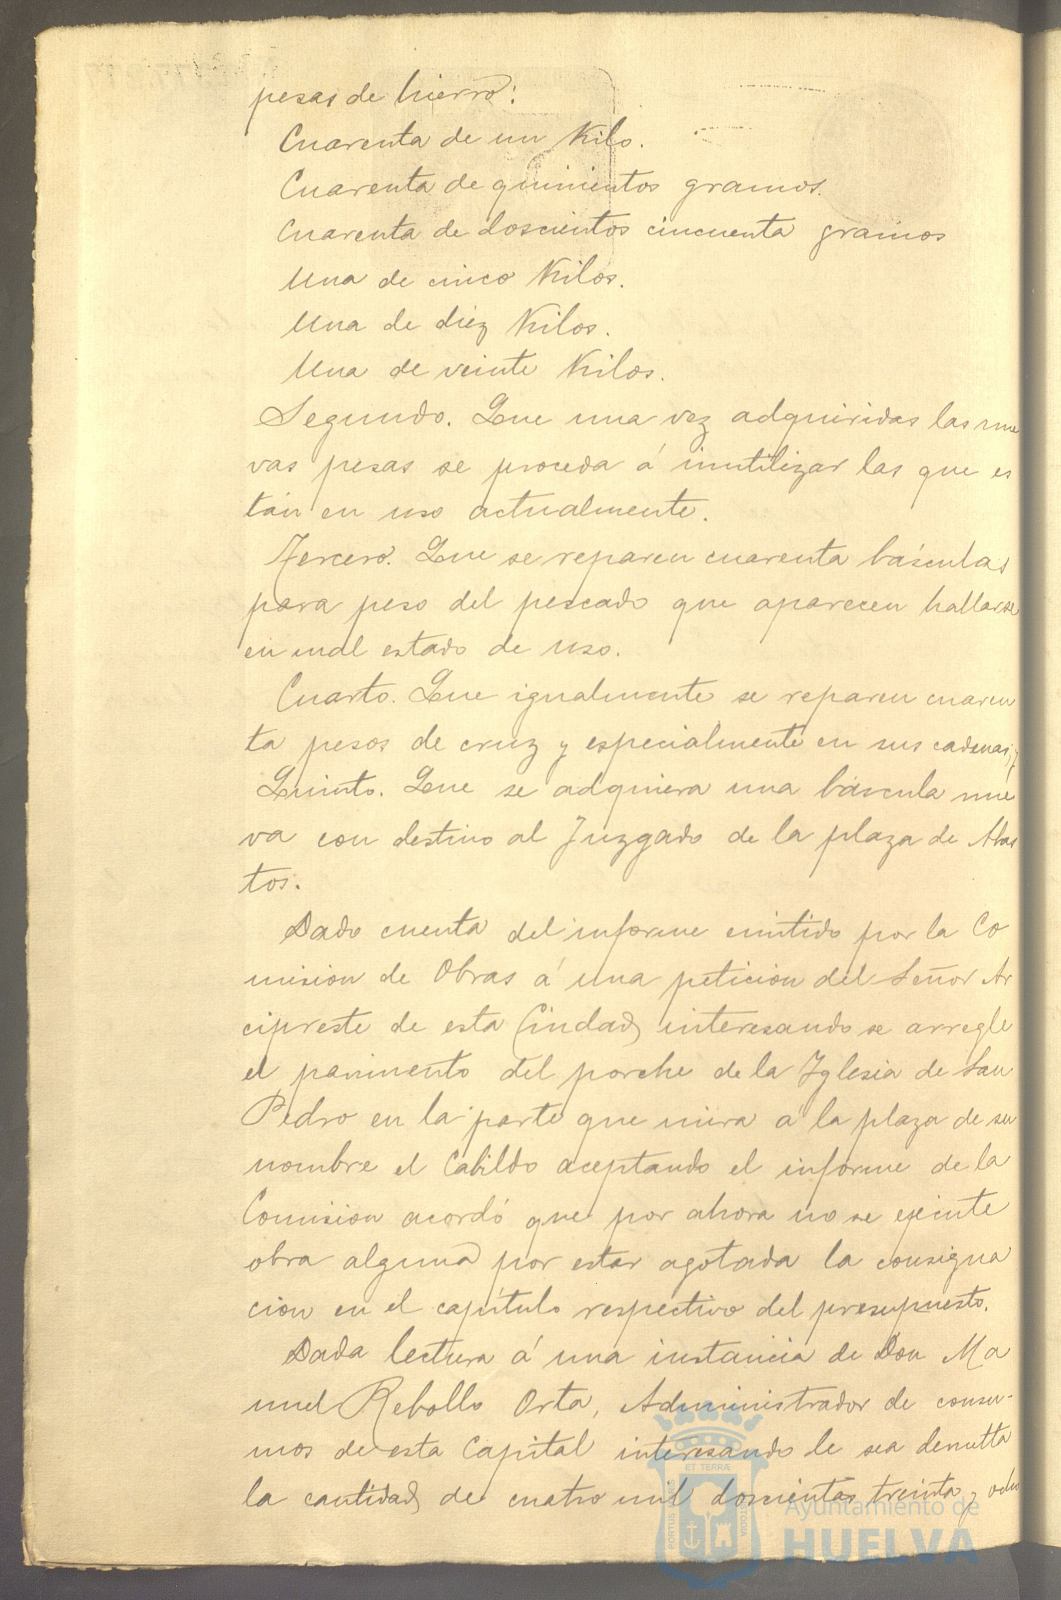 pesas de hierro:
Cuarenta de un Kilo.
Cuarenta de quinientos gramos.
Cuarenta de doscientos cincuenta gramos
Una de cinco Kilos.
Una de diez Kilos.
Una de veinte Kilos.
Segundo. Que una vez adquiridas las nue
vas pesas se proceda á inutilizar las que es
tán en uso actualmente.
Tercero. Que se reparen cuarenta básculas
para peso del pescado que aparecen hallarse
en mal estado de uso.
Cuarto. Que igualmente se reparen cuaren
ta pesos de cruz y especialmente en sus cadenas, y
Quinto. Que se adquiera una báscula nue
va con destino al Juzgado de la plaza de Abas
tos.
Dado cuenta del informe emitido por la Co
misión de Obras á una petición del Señor Ar
cipreste de esta Ciudad interesando se arregle
el pavimento del porche de la Iglesia de San
Pedro en la parte que mira á la plaza de su
nombre el Cabildo aceptando el informe de la
Comisión acordó que por ahora no se ejecute
obra alguna por estar agotada la consigna
ción en el capítulo respectivo del presupuesto.
Dada lectura á una instancia de Don Ma
nuel Rebollo Orta, Administrador de consu-
mos de esta Capital interesando le sea devuelta
la cantidad de cuatro mil doscientas treinta y ocho
PORTUS MARIS ET TERRÆ CUSTODIA
Ayuntamiento de
HUELVA